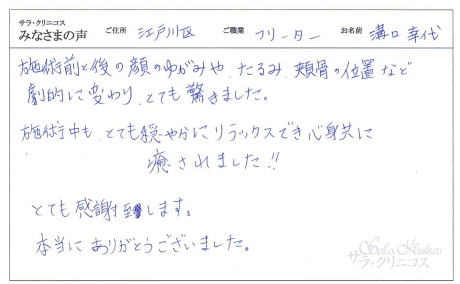 サラ・クリニコス
みなさまの声 ご住所 江戸川区 ご職業 フリーター お名前 溝口幸代
施術前と後の顔のゆがみや、たるみ、頬骨の位置など
劇的に変わり、とても驚きました。
施術中も、とても穏やかにリラックスでき心身共に
癒されました!!
とても感謝致します。
本当にありがとうございました。
Sala Klinikos
サラ・クリニコス